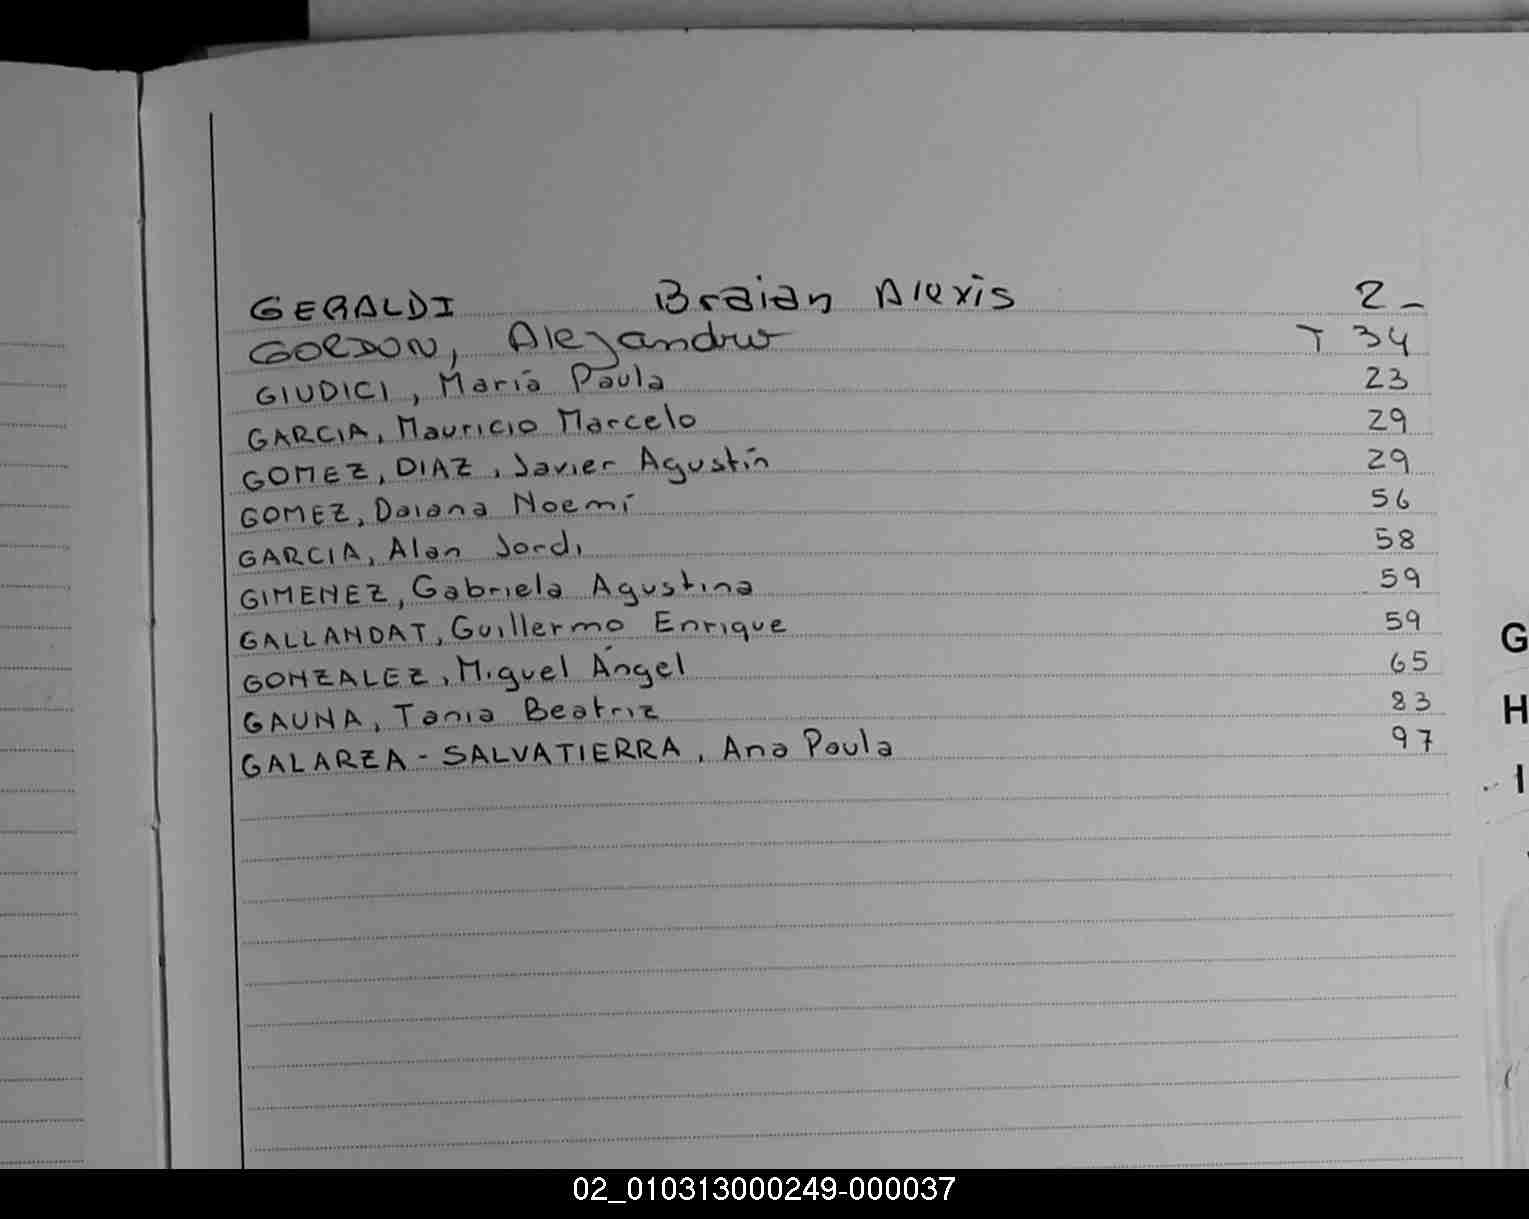 GERALDI Braian Alexis 2_
GORDON, Alejandro T 34
GIUDICI, María Paula 23
GARCIA, Mauricio Marcelo 29
GOMEZ, DIAZ, Javier Agustín 29
GOMEZ, Daiana Noemí 56
GARCIA, Alan Jordi 58
GIMENEZ, Gabriela Agustina 59
GALLANDAT, Guillermo Enrique 59
GONZALEZ, Miguel Ángel 65
GAUNA, Tania Beatriz 83
GALARZA - SALVATIERRA, Ana Paula 97
G
H
I
02_010313000249-000037